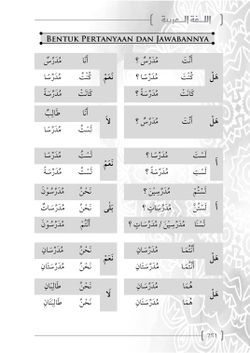 اللغة العربية
BENTUK PERTANYAAN DAN JAWABANNYA
هَلْ أَنْتَ مُدَرِّسٌ ؟ نَعَمْ أَنَا مُدَرِّسٌ
كُنْتَ مُدَرِّسًا ؟ كُنْتُ مُدَرِّسًا
كَانَتْ مُدَرِّسَةً ؟ كَانَتْ مُدَرِّسَةً
هَلْ أَنْتَ مُدَرِّسٌ ؟ لَا أَنَا طَالِبٌ
لَسْتُ مُدَرِّسًا
أَ لَسْتَ مُدَرِّسًا ؟ نَعَمْ لَسْتُ مُدَرِّسًا
لَسْتِ مُدَرِّسَةً ؟ لَسْتُ مُدَرِّسَةً
أَ لَسْتُمْ مُدَرِّسِيْنَ ؟ بَلَى نَحْنُ مُدَرِّسُوْنَ
لَسْتُنَّ مُدَرِّسَاتٍ ؟ نَحْنُ مُدَرِّسَاتٌ
لَسْنَا مُدَرِّسِيْنَ / مُدَرِّسَاتٍ ؟ أَنْتُمْ مُدَرِّسُوْنَ
هَلْ أَنْتُمَا مُدَرِّسَانِ نَعَمْ نَحْنُ مُدَرِّسَانِ
أَنْتُمَا مُدَرِّسَتَانِ نَحْنُ مُدَرِّسَتَانِ
هَلْ هُمَا مُدَرِّسَانِ لَا نَحْنُ طَالِبَانِ
هُمَا مُدَرِّسَتَانِ نَحْنُ طَالِبَتَانِ
251